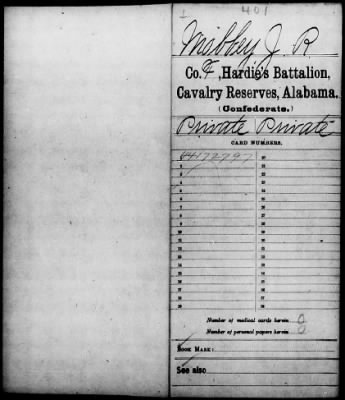 1 401
Mabbey J. R
Co. F, Hardie's Battalion,
Cavalry Reserves, Alabama.
(Confederate.)
Private Private
CARD NUMBERS.
1 44172797 20
2 21
3 22
4 23
5 24
6 25
7 26
8 27
9 28
10 29
11 30
12 31
13 32
14 33
15 34
16 35
17 36
18 37
19 38
Number of medical cards herein 0
Number of personal papers herein 0
BOOK MARK:
See also